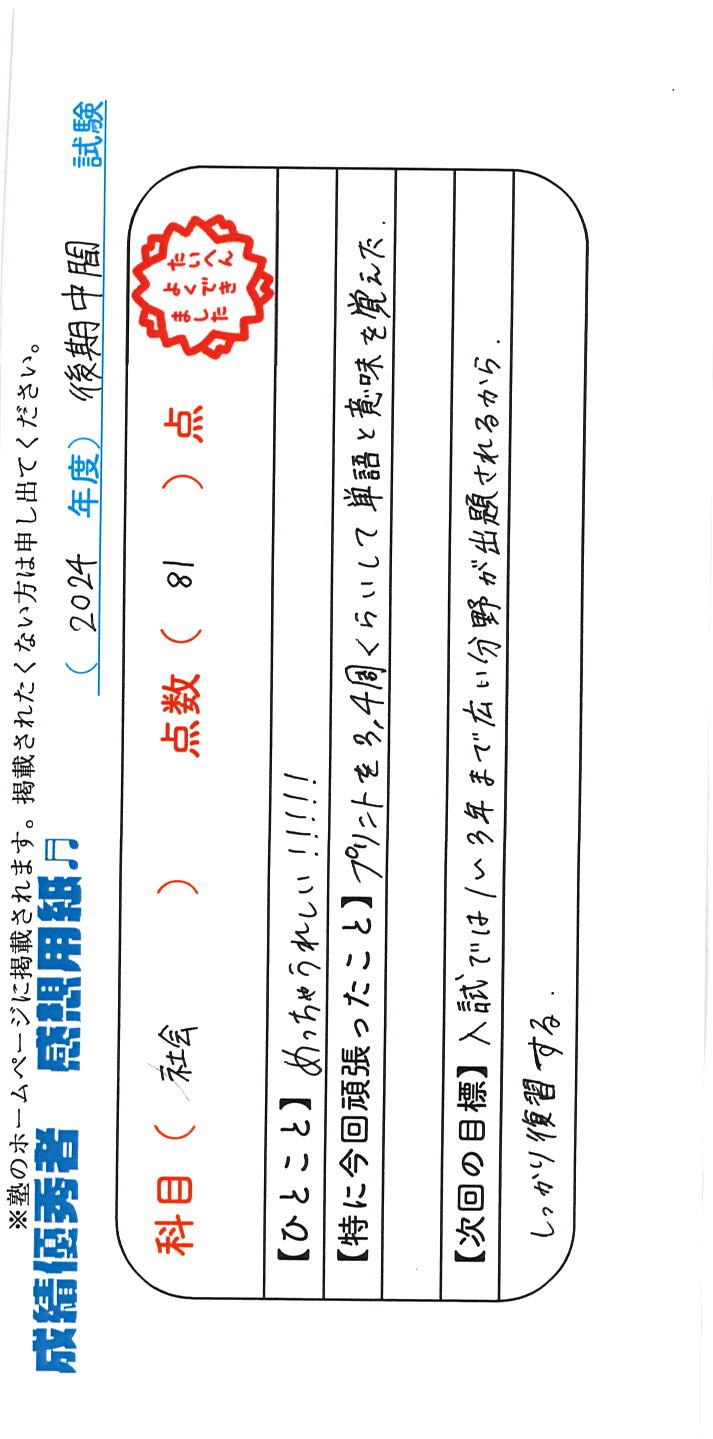 ※塾のホームページに掲載されます。掲載されたくない方は申し出てください。
成績優秀者 感想用紙♫
（ 2024 年度）後期中間 試験
科目（ 社会 ） 点数（ 81 ）点
たいへん
よくでき
ました
【ひとこと】めっちゃうれしい!!!!!
【特に今回頑張ったこと】プリントを3,4周くらいして単語と意味を覚えた.
【次回の目標】入試では1～3年まで広い分野が出題されるから.
しっかり復習する.